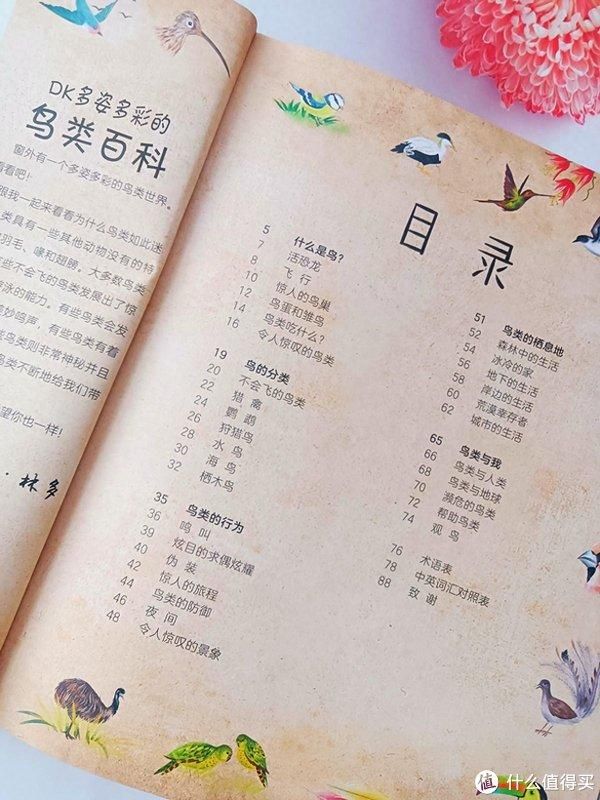 DK多姿多彩的
鸟类百科
窗外有一个多姿多彩的鸟类世界。
看看吧!
跟我一起来看看为什么鸟类如此迷
类具有一些其他动物没有的特
羽毛、喙和翅膀。大多数鸟类
些不会飞的鸟类发展出了惊
泳的能力。有些鸟类会发
妙鸣声,有些鸟类有着
鸟类则非常神秘并且
鸟类不断地给我们带
望你也一样!
·林多
目录
5 什么是鸟?
7 活恐龙
8 飞行
10 惊人的鸟巢
12 鸟蛋和雏鸟
14 鸟类吃什么?
16 令人惊叹的鸟类
19 鸟的分类
20 不会飞的鸟类
22 猎禽
24 鹦鹉
26 狩猎鸟
28 水鸟
30 海鸟
32 栖木鸟
35 鸟类的行为
36 鸣叫
39 炫目的求偶炫耀
40 伪装
42 惊人的旅程
44 鸟类的防御
46 夜间
48 令人惊叹的景象
51 鸟类的栖息地
52 森林中的生活
54 冰冷的家
56 地下的生活
58 岸边的生活
60 荒漠幸存者
62 城市的生活
65 鸟类与我
66 鸟类与人类
68 鸟类与地球
70 濒危的鸟类
72 帮助鸟类
74 观鸟
76 术语表
78 中英词汇对照表
88 致谢
值 什么值得买